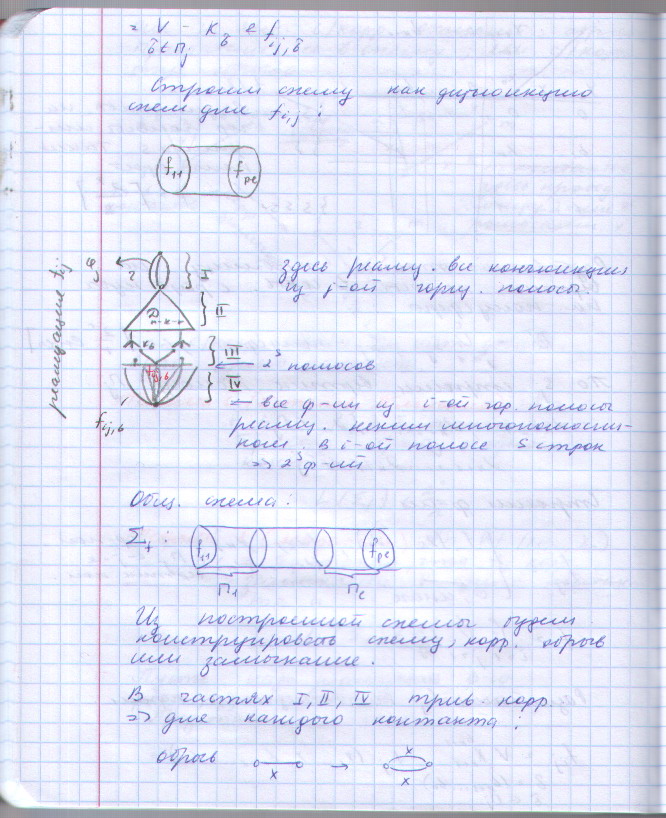 = V - K_σ̃ & f_{ij, σ̃}
σ̃ ∈ Π_j
Строим схему как дизъюнкцию
схем для f_{i,j} :
f_{11} f_{pe}
реализация f_{ij}
φ_j 2 } I
здесь реализ. все конъюнкции
из j-ой гориз. полосы.
D_{n-k-r} } II
K_σ̃ } III
← 2^s полюсов
} IV
f_{ij,σ̃}
← все ф-ии из i-ой гор. полосы
реализ. неким многополюсни-
ком. В i-ой полосе s строк
=> 2^s ф-ий
Общ. схема:
Σ_f : f_{11} f_{pe}
Π_1 Π_e
Из построенной схемы будем
конструировать схему, корр. обрыв
или замыкание.
В частях I, II, IV трив. корр.
=> для каждого контакта :
обрыв x → x
x